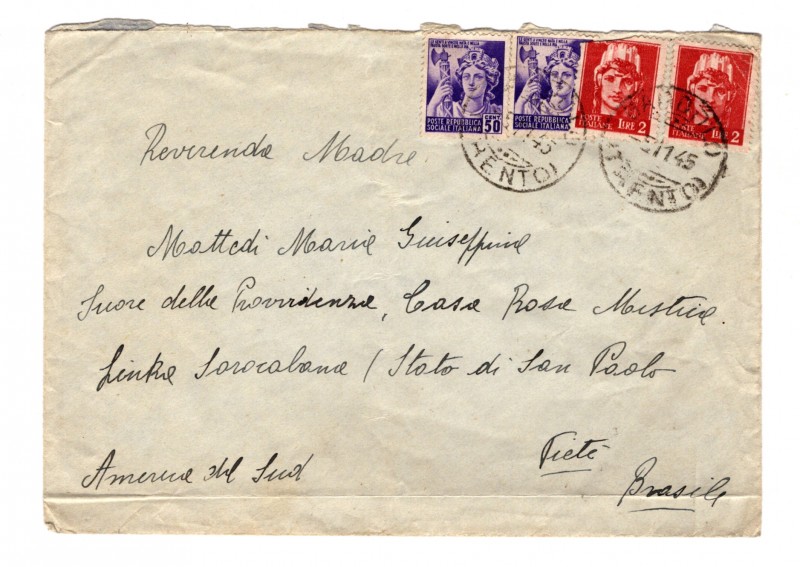 POSTE REPUBBLICA
SOCIALE ITALIANA
50 CENT.
POSTE REPUBBLICA
SOCIALE ITALIANA
POSTE
ITALIANE
LIRE 2
POSTE
ITALIANE
LIRE 2
45
(TRENTO)
11 45
(TRENTO)
Reverenda Madre
Mattedi Maria Giuseppina
Suore della Provvidenza, Casa Rosa Mistica.
Linha Sorocabana / Stato di San Paolo
America del Sud
Tietè
Brasile